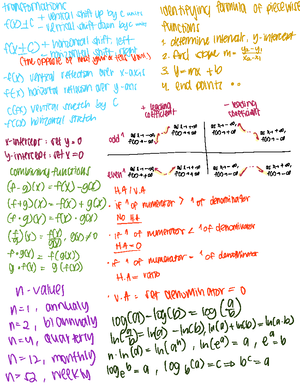 transformations
f(x)±c → vertical shift up by c units
vertical shift down by c units
f(x±c) → horizontal shift left
→ horizontal shift right
-f(x) vertical reflection over x-axis
f(x) horizontal reflection over y-axis
cf(x) vertical stretch by c
horizontal stretch
x-intercept: set y=0
y-intercept: set x=0
combining functions
(f-g)(x) = f(x) - g(x)
(f+g)(x) = f(x) + g(x)
(f·g)(x) = f(x) · g(x)
(f/g)(x) = f(x)/g(x), g(x) ≠ 0
f∘g(x) = f(g(x))
g∘f(x) = g(f(x))
n-values
n=1, annually
n=2, biannually
n=4, quarterly
n=12, monthly
n=52, weekly
identifying formula of piecewise
functions
1. determine interval, y-intercept
2. find slope m = y₂-y₁/x₂-x₁
3. y=mx+b
4. end points
+ leading
coefficient
- leading
coefficient
odd
even
H.A / V.A
· if ° of numerator > ° of denominator
NO HA
· if ° of numerator < ° of denominator
HA=0
· if ° of numerator = ° of denominator
H.A = ratio
· V.A = set denominator = 0
log(a)-log(b) = log(a/b)
ln(a/b) = ln(a) - ln(b), ln(a)+ln(b) = ln(a·b)
n·ln(a) = ln(aⁿ), ln(eᵃ) = a, e
= a, log b(a) = c → bᶜ = a